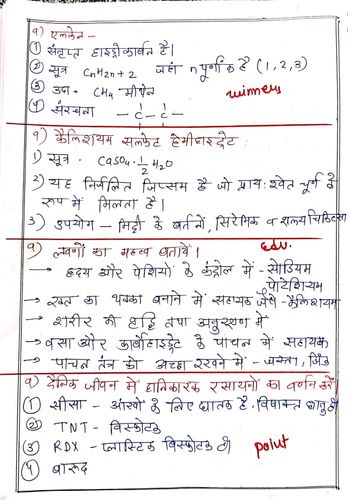 १) एल्केन -
① संतृप्त हाइड्रोकार्बन है।
② सूत्र CnH2n+2 जहां n पूर्णांक है (1, 2, 3)
③ उदा. CH4 मीथेन
winners
④ संरचना - C - C -
१) कैल्शियम सल्फेट हेमीहाइड्रेट
1) सूत्र - CaSO4 . 1/2 H2O
2) यह निर्जलित जिप्सम है जो प्रायः श्वेत चूर्ण के
रूप में मिलता है।
3) उपयोग - मिट्टी के बर्तनों, सिरेमिक व शल्यचिकित्सा
१) लवणों का महत्व बतायें।
Edu.
→ हृदय और पेशियों के कंट्रोल में - सोडियम
पोटेशियम
→ रक्त का थक्का बनाने में सहायक जैसे - कैल्शियम
→ शरीर की वृद्धि तथा अनुरक्षण में
→ वसा और कार्बोहाइड्रेट के पाचन में सहायक
→ पाचन तंत्र को अच्छा रखने में - जस्ता, जिंक
१) दैनिक जीवन में हानिकारक रसायनों का वर्णन करें।
① सीसा - आंखो के लिए घातक है, विषाक्त धातु है।
② TNT - विस्फोटक
③ RDX - प्लास्टिक विस्फोटक है।
point
④ बारूद